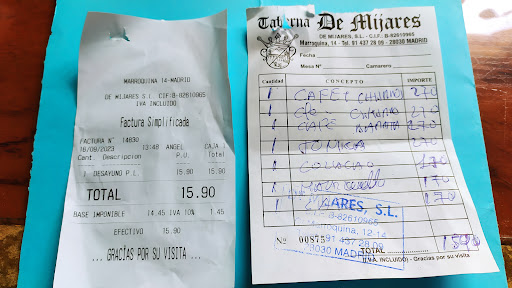 MARROQUINA 14-MADRID
DE MIJARES S.L CIF:B-82610965
IVA INCLUIDO
Factura Simplificada
FACTURA N° 14830
18/09/2023 13:48 ANGEL CAJA 1
Cant. Descripcion P.U. Total
1 DESAYUNO P.L. 15.90 15.90
TOTAL 15.90
BASE IMPONIBLE 14.45 IVA 10% 1.45
EFECTIVO 15.90
... GRACIAS POR SU VISITA ...
Taberna De Mijares
DE MIJARES, S.L. - C.I.F.: B-82610965
Marroquina, 14 - Tel. 91 437 28 09 - 28030 MADRID
Fecha
Mesa N° Camarero
Cantidad CONCEPTO IMPORTE
1 CAFE y CHURRO 270
1 270
1 CAFE 270
1 270
1 COLACAO 170
1 170
1 170
MIJARES, S.L.
B-82610965
Marroquina, 12-14
91 437 28 09
28030 MADRID
N° 00875 TOTAL 1590
(IVA. INCLUIDO) - Gracias por su visita